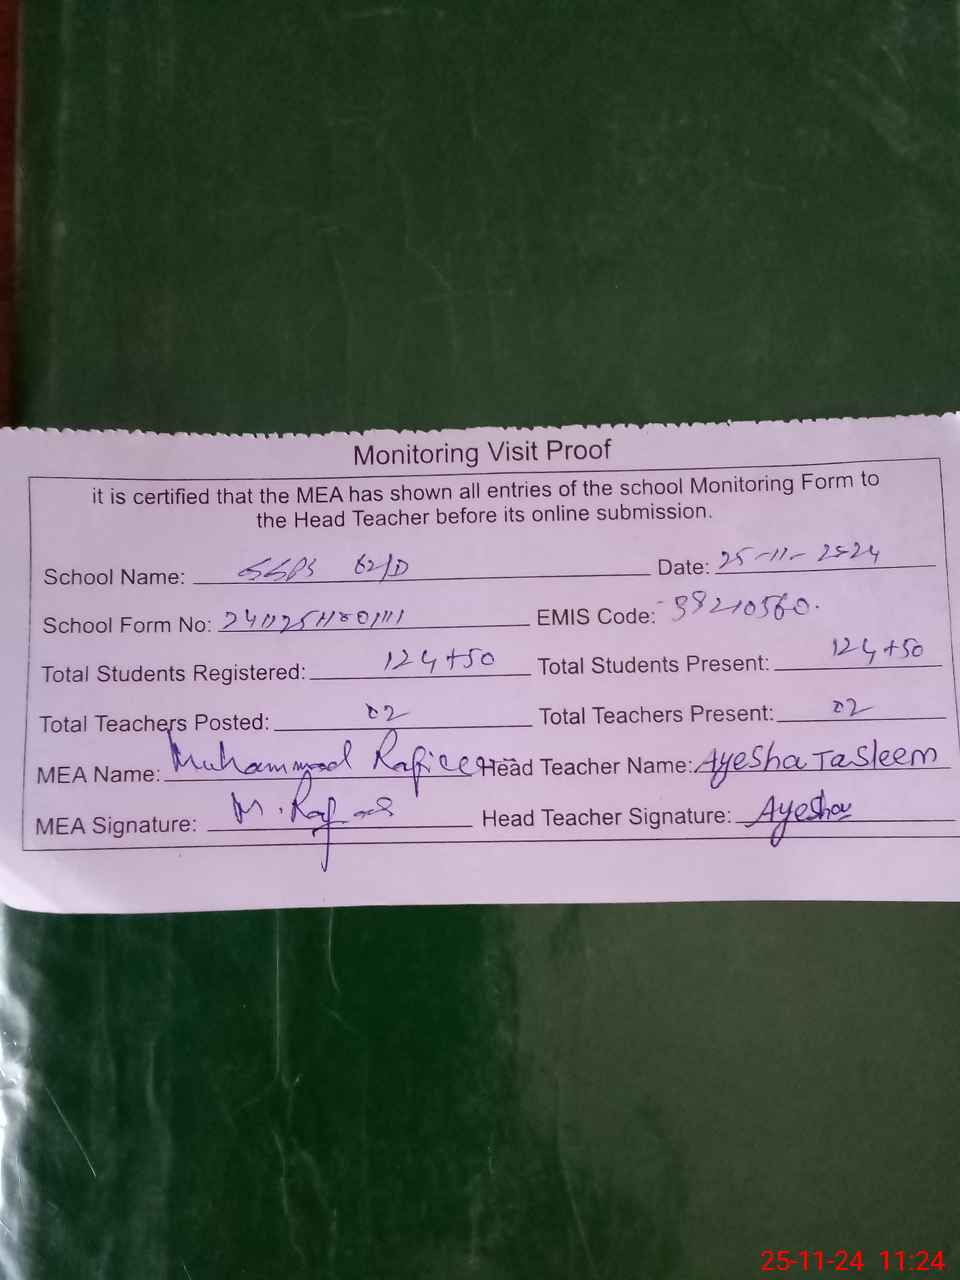 Monitoring Visit Proof
it is certified that the MEA has shown all entries of the school Monitoring Form to
the Head Teacher before its online submission.
School Name: 62/D Date: 25-11-2024
School Form No: EMIS Code: 38210560.
Total Students Registered: 124+50 Total Students Present: 124+50
Total Teachers Posted: 02 Total Teachers Present: 02
MEA Name: Muhammad Head Teacher Name: Ayesha Tasleem
MEA Signature: Head Teacher Signature: Ayesha
25-11-24 11:24